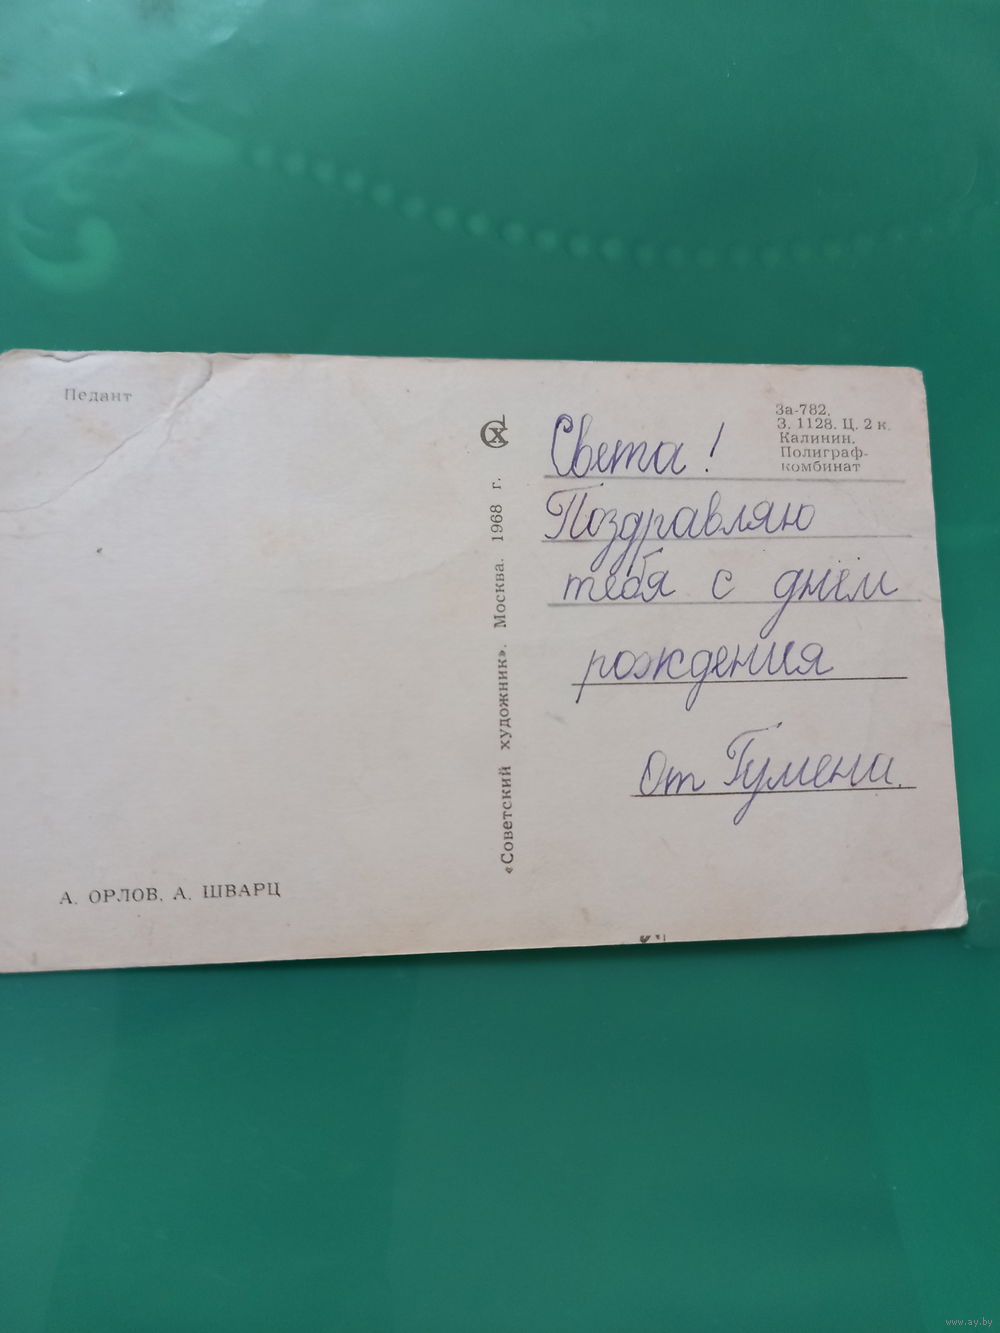 Педант
А. ОРЛОВ, А. ШВАРЦ
«Советский художник». Москва. 1968 г.
За-782,
З. 1128. Ц. 2 к.
Калинин.
Полиграф-
комбинат
Света!
Поздравляю
тебя с днём
рождения
от Гумени.
www.ay.by